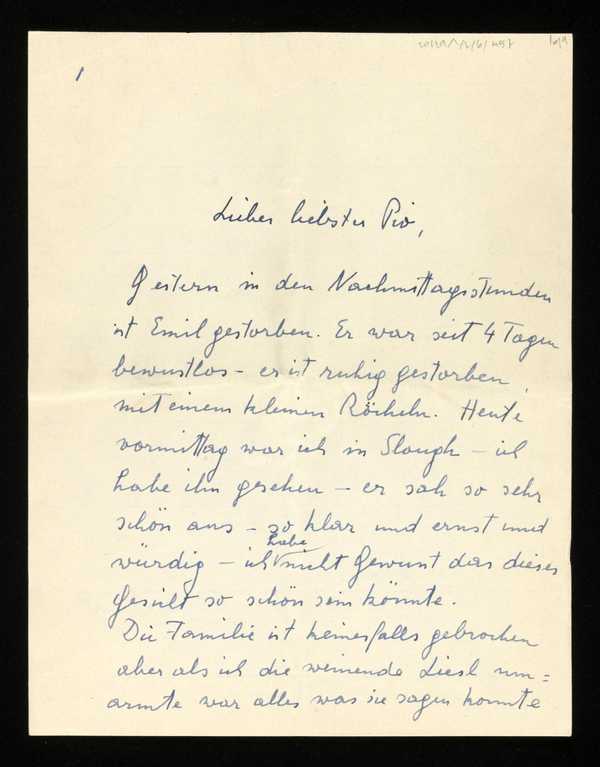 1
Lieber liebster Pio,
Gestern in den Nachmittagsstunden
ist Emil gestorben. Er war seit 4 Tagen
bewustlos – er ist ruhig gestorben,
mit einem kleinen Röcheln. Heute
vormittag war ich in Slough – ich
habe ihn gesehen – er sah so sehr
schön aus – so klar und ernst und
würdig – ich habe nicht gewust das dieses
Gesicht so schön sein könnte.
Die Familie ist keinesfalls gebrochen
aber als ich die weinende Liesl um=
armte war alles was sie sagen konnte